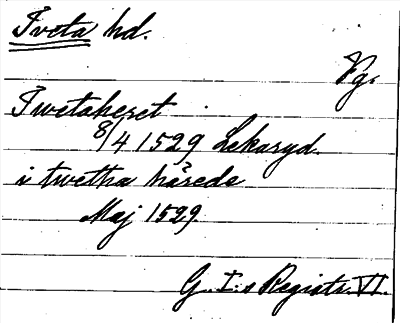 Tveta hd.
Vg.
Twetaheret
8/4 1529 Lekaryd.
i twetha hårede
Maj 1529
G. I:s Registr. VI.